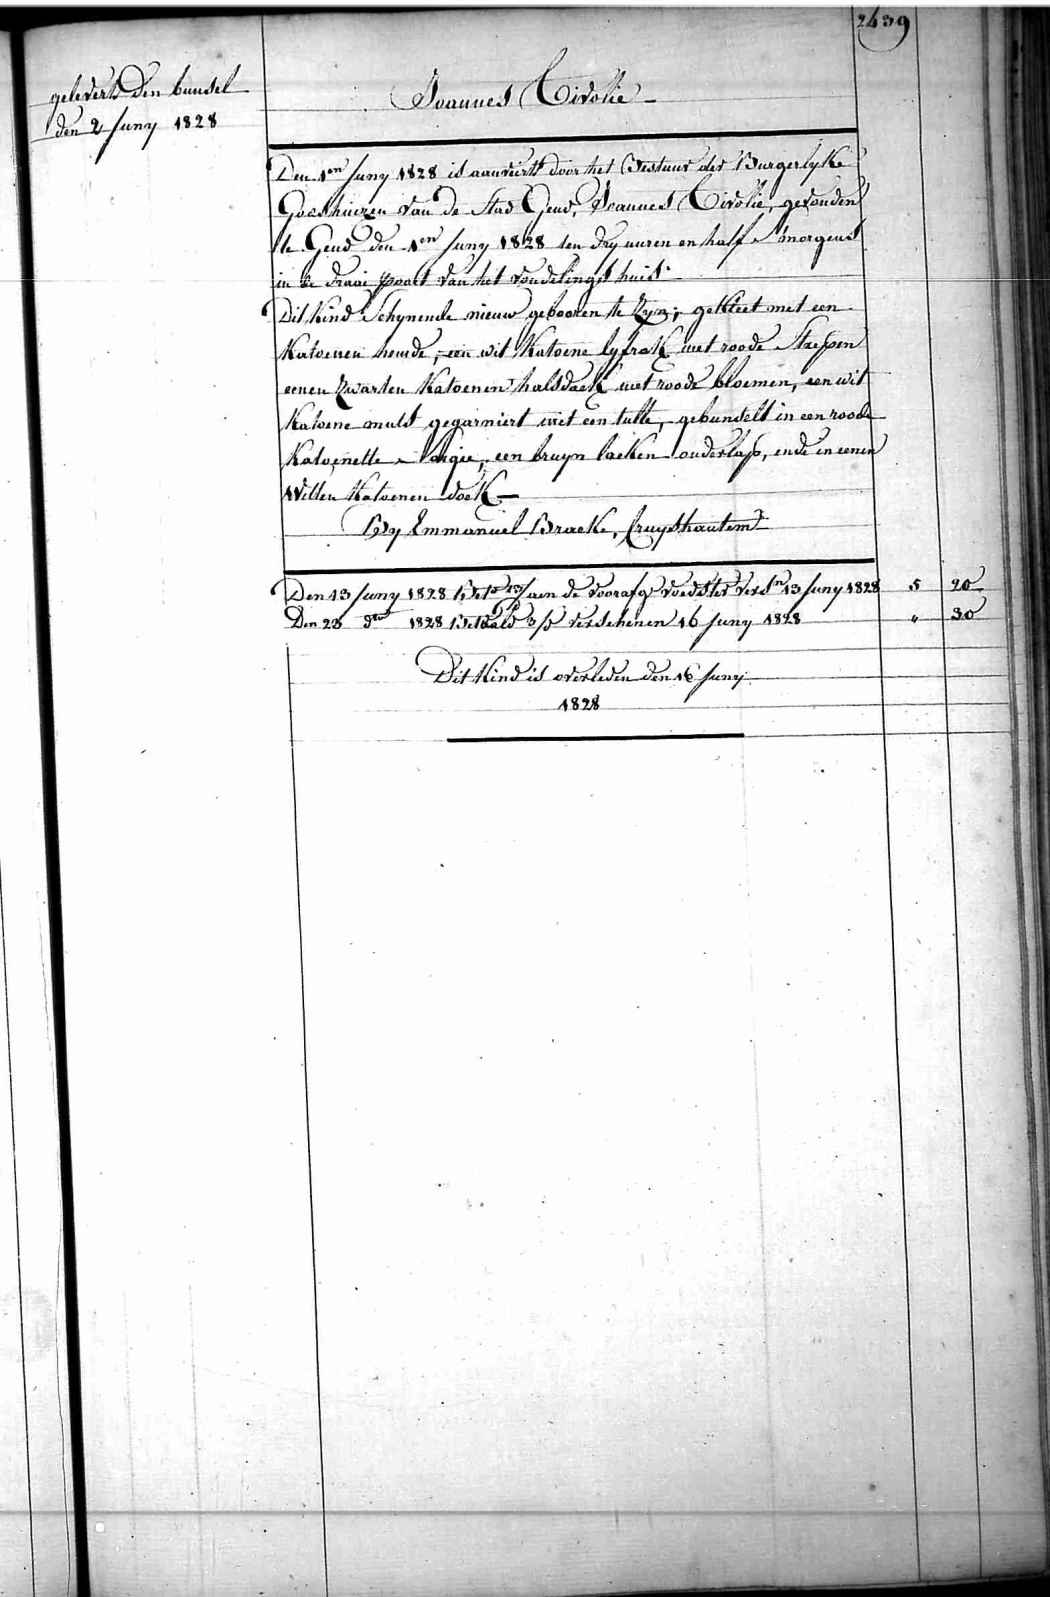 2439
gelevert den bunsel
den 2 Juny 1828
Joannes Tivolie
Den 1en Juny 1828 is aanveirt door het Bestuur der Burgerlyke
Godshuizen van de Stad Gend, Joannes Tivolie, gevonden
te Gend den 1en Juny 1828 ten dry uuren en half s'morgens
in de draai poort van het vondelingshuis.
Dit Kind Schynende nieuw gebooren te zyn; gekleet met een
Katoenen hemde, een wit Katoene lyfrok met roode Streepen
eenen zwarten Katoenen halsdoek met roode bloemen, een wit
Katoene muts gegarniert met een tulle, gebunselt in een roode
Katoenette sargie, een bruyn laeken onderlap, ende in eenen
Witten Katoenen doek
By Emmanuel Bracke, Cruyshautem
Den 13 Juny 1828 aen de voorafg. voedster vers.n 13 Juny 1828 5 20
Den 23 do 1828 Betaald verschenen 16 Juny 1828 " 30
Dit Kind is overleden den 16 Juny
1828